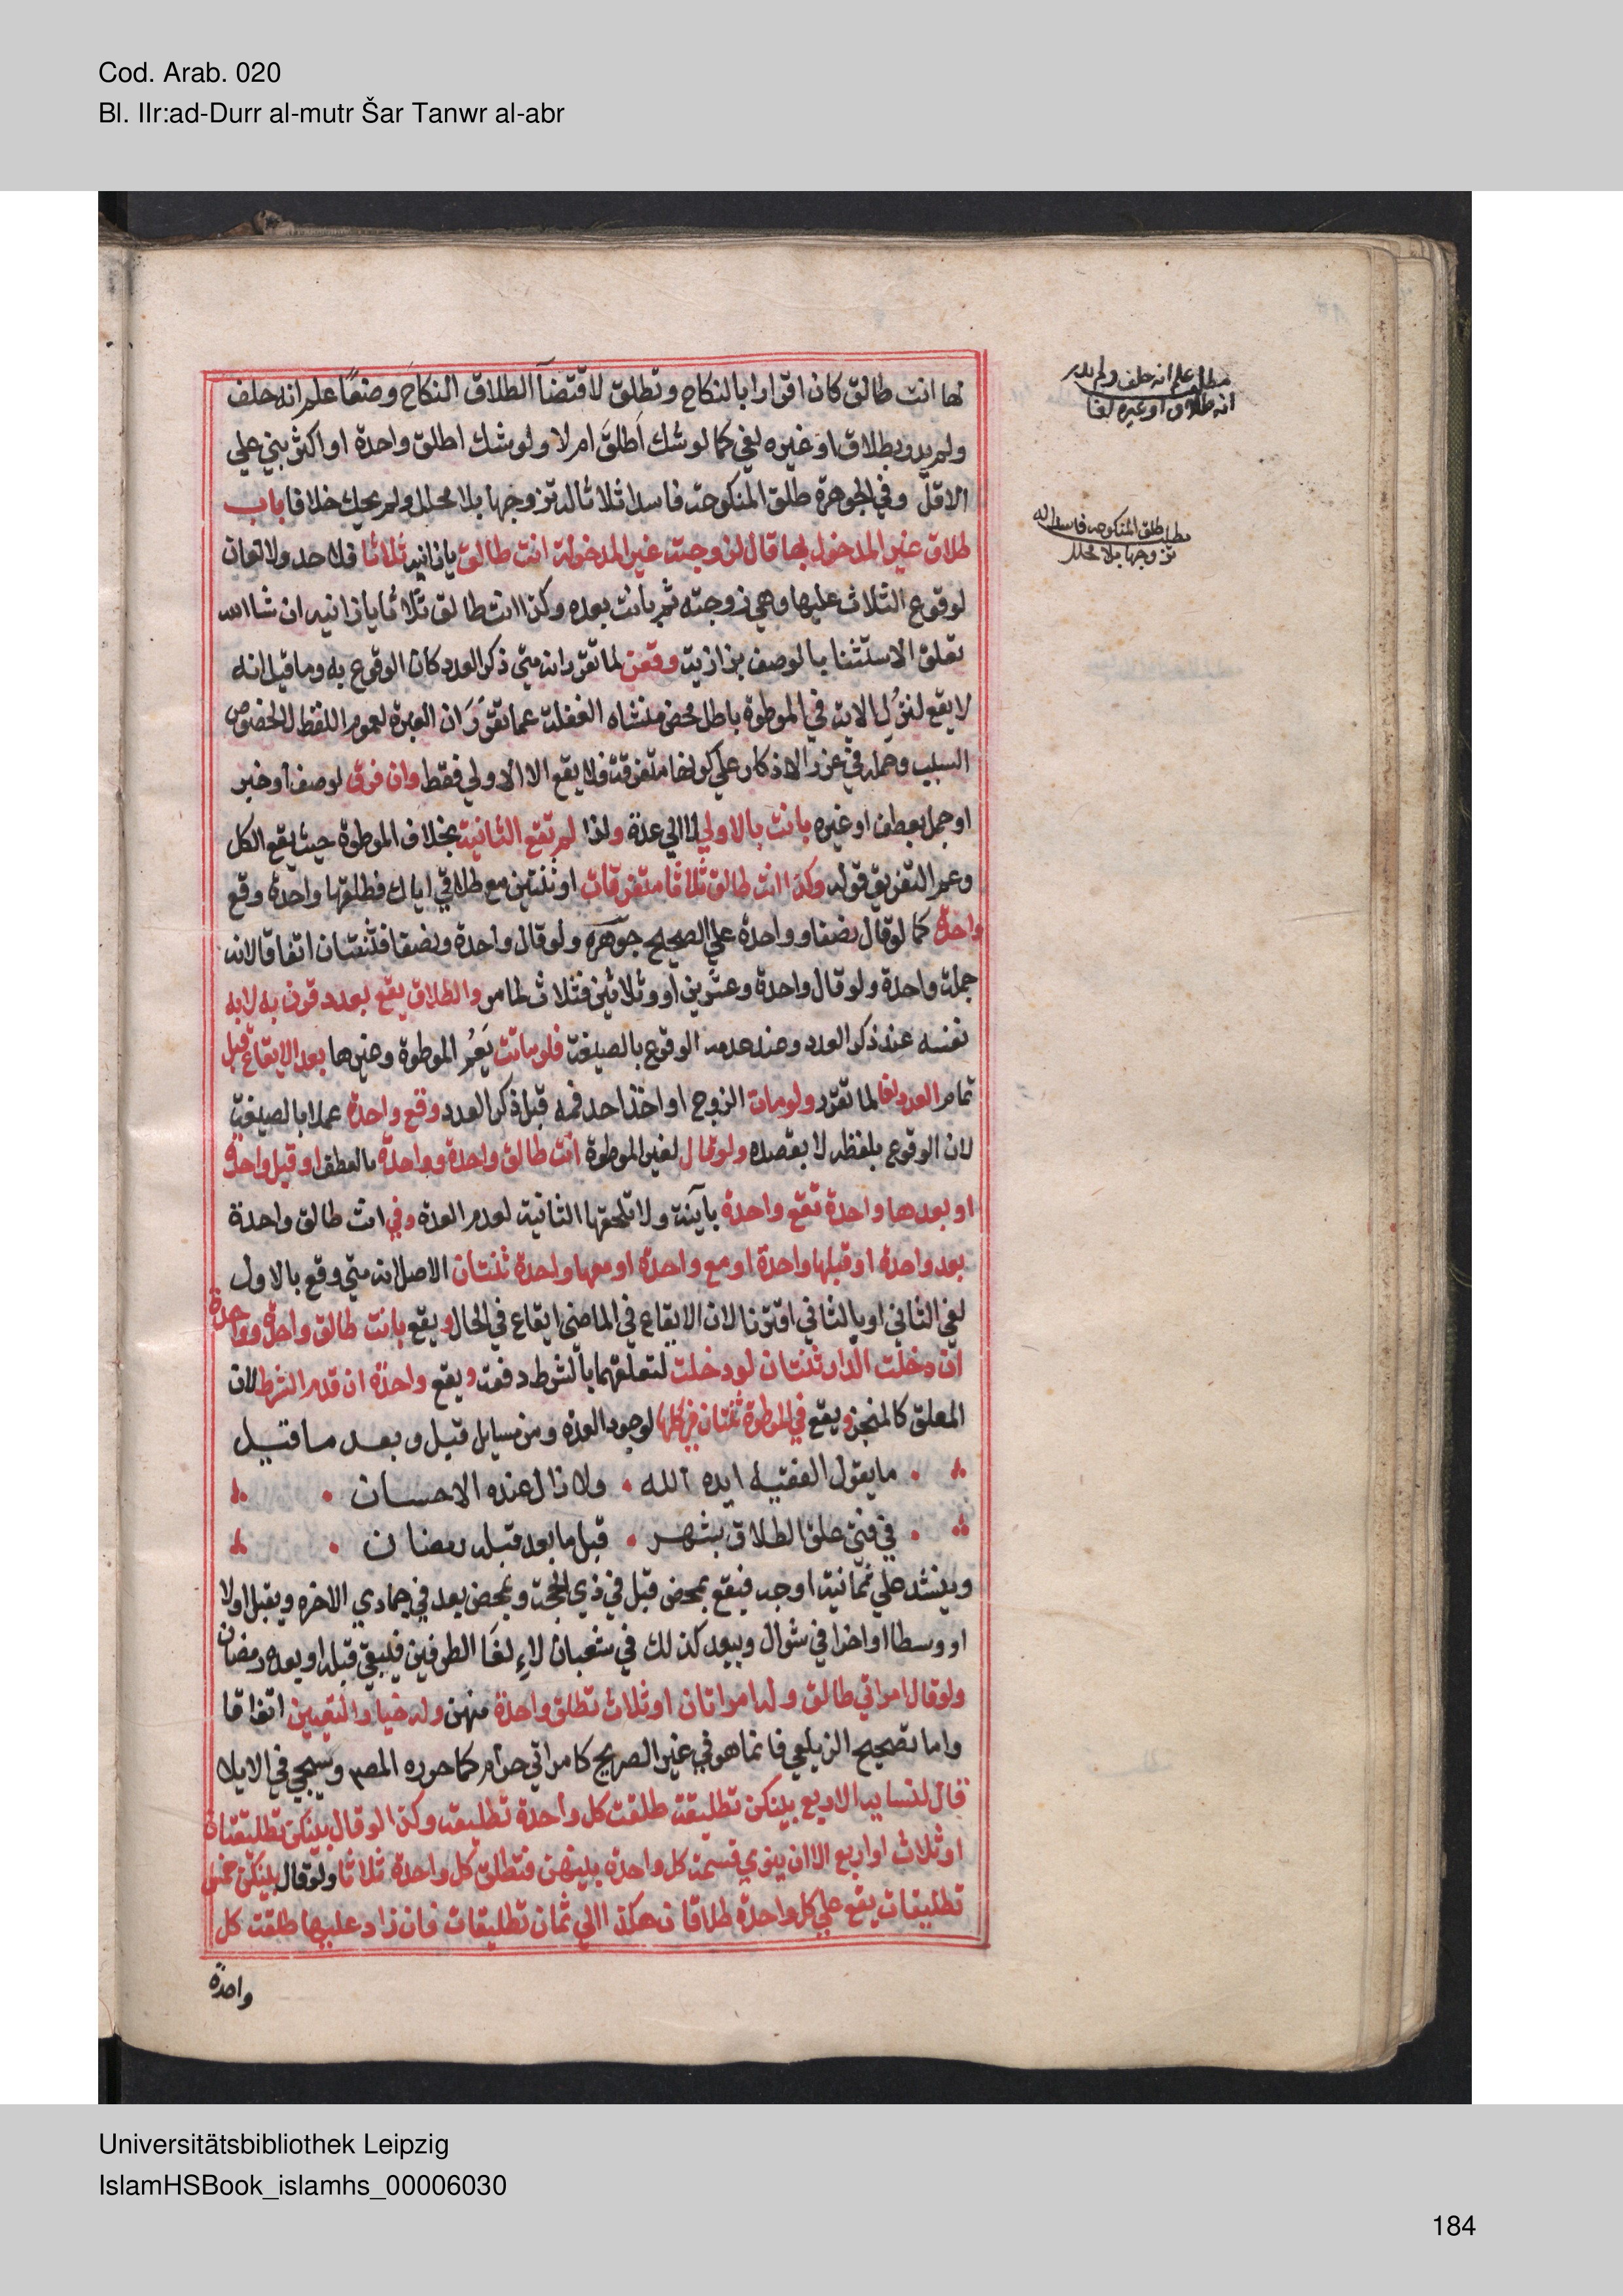 Cod. Arab. 020
Bl. IIr:ad-Durr al-mutr Šar Tanwr al-abr
لها انت طالق كان اقرارا بالنكاح وتطلق لاقتضآ الطلاق النكاح وضعًا علم انه حلف
ولم يدر بطلاق او غيره لغي كما لو شك أطلقَ ام لا ولو شك اطلق واحدة او اكثر بني علي
الاقلّ وفي الجوهرة طلق المنكوحة فاسدا ثلاثا له تزوجها بلا محلل ولم يحك خلافا باب
طلاق غير المدخول بها قال لزوجته غير المدخولة انت طالق يازانية ثلاثا فلا حد ولا لعان
لوقوع الثلاث عليها وهي زوجته ثم بانت بعده وكذا انت طالق ثلاثا يازانية ان شا الله
تعلق الاستثنا بالوصف بزازية وقعن لما تقرر انه متي ذكر العدد كان الوقوع به وما قيل انه
لا يقع لنزُولِ الاية في الموطوة باطل محض منشاه الغفلة عما تقرّرَ ان العبرة لعموم اللفظ لا لخصوص
السبب وحمله في غرر الاذكار علي كونها متفرقة فلا يقع الا الاولي فقط وان فرق لوصف او خبر
او جمل بعطف او غيره بانت بالاولي لا الي عدة ولذا لم تقع الثانية بخلاف الموطوة حيث يقع الكل
وعم التفريق قوله وكذا انت طالق ثلاثا متفرقات او ثنتين مع طلاقي اياك فطلقها واحدة وقع
واحدة كما لو قال نصفا وواحدة علي الصحيح جوهره ولو قال واحدة ونصفا فثنتان اتفاقا لانه
جملة واحدة ولو قال واحدة وعشرين او وثلاثين فثلاث لما مر والطلاق يقع بعدد قرن به لا به
نفسه عند ذكر العدد وعند عدمه الوقوع بالصيغة فلو ماتت يَعُم الموطوة وغيرها بعد الايقاع قبل
تمام العدد لغا لما تقرر ولو مات الزوج او اخذ احد فمه قبل ذكر العدد وقع واحدة عملا بالصيغة
لان الوقوع بلفظه لا بقصده ولو قال لغير الموطوة انت طالق واحدة وواحدة بالعطف او قبل واحدة
او بعدها واحدة تقع واحدة بآينة ولا تلحقها الثانية لعدم العدة وفي انت طالق واحدة
بعد واحدة او قبلها واحدة او مع واحدة او معها واحدة ثنتان الاصل انه متي وقع بالاول
لغي الثاني او بالثاني اقترنا لان الايقاع في الماضي ايقاع في الحال ويقع بانت طالق واحدة وواحدة
ان دخلت الدار ثنتان لو دخلت لتعلقهما بالشرط دفعة ويقع واحدة ان قدم الشرط لان
المعلق كالمنجز ويقع في الموطوة ثنتان في كلها لوجود العدة ومن مسايل قبل وبعد ما قيل
ما يقول الفقيه ايده الله • ولا زال عنده الاحسان •
في فتي علق الطلاق بشهر • قبل ما بعد قبله رمضان •
وينشد علي ثمانية اوجه فيقع بمحض قبل في ذي الحجة وبمحض بعد في جمادي الاخره وبقبل اولا
او وسطا او اخرا في شوال وببعد كذلك في شعبان لاءِ لغَا الطرفين فيبقي قبله او بعده رمضان
ولو قال امراتي طالق وله امراتان او ثلاث تطلق واحدة منهن وله خيار التعيين اتفاقا
واما تصحيح الزيلعي فانما هو في غير الصريح كامراتي حرام كما حرره المصـ وسيجي في الايلا
قال لنسايه الاربع بينكن تطليقة طلقت كل واحدة تطليقة وكذا لو قال بينكن تطليقتان
او ثلاث او اربع الا ان ينوي قسمة كل واحدة بينهن فتطلق كل واحدة ثلاثا ولو قال بينكن خمس
تطليقات يقع علي كل واحدة طلاقان هكذا الي ثمان تطليقات فان زاد عليها طلقت كل
واحدة
مطلب علم انه حلف ولم يدر
انه طلاق او غيره لغا
مطلب طلق المنكوحة فاسدا له
تزوجها بلا محلل
Universitätsbibliothek Leipzig
IslamHSBook_islamhs_00006030
184